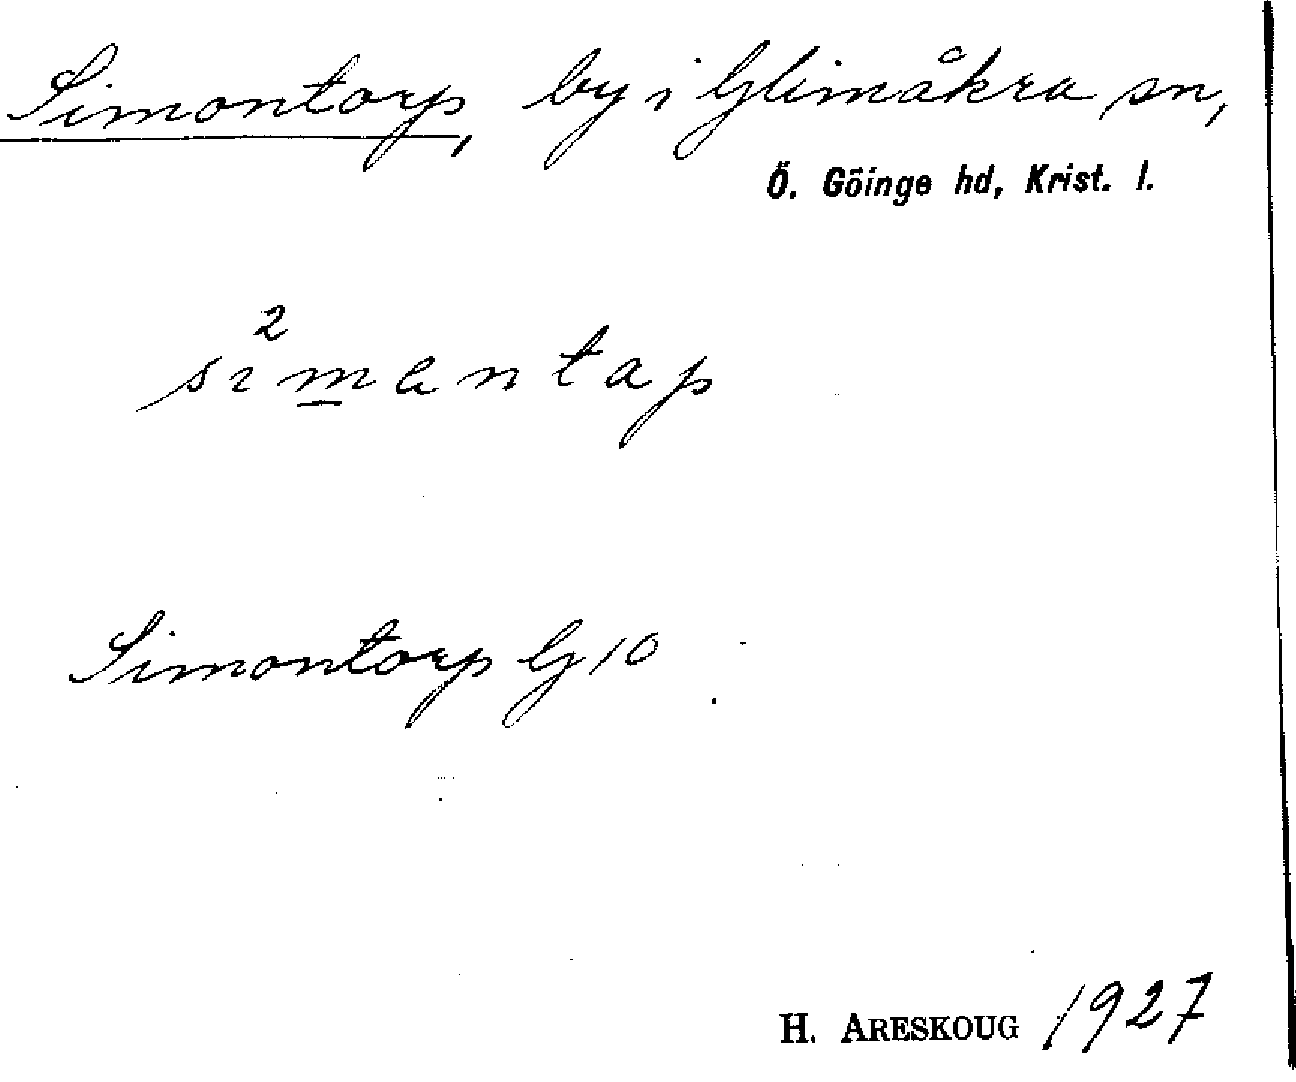 Simontorp, by i Glimåkra sn,
Ö. Göinge hd, Krist. l.
2
sımantap
Simontorp G 10
H. ARESKOUG 1927